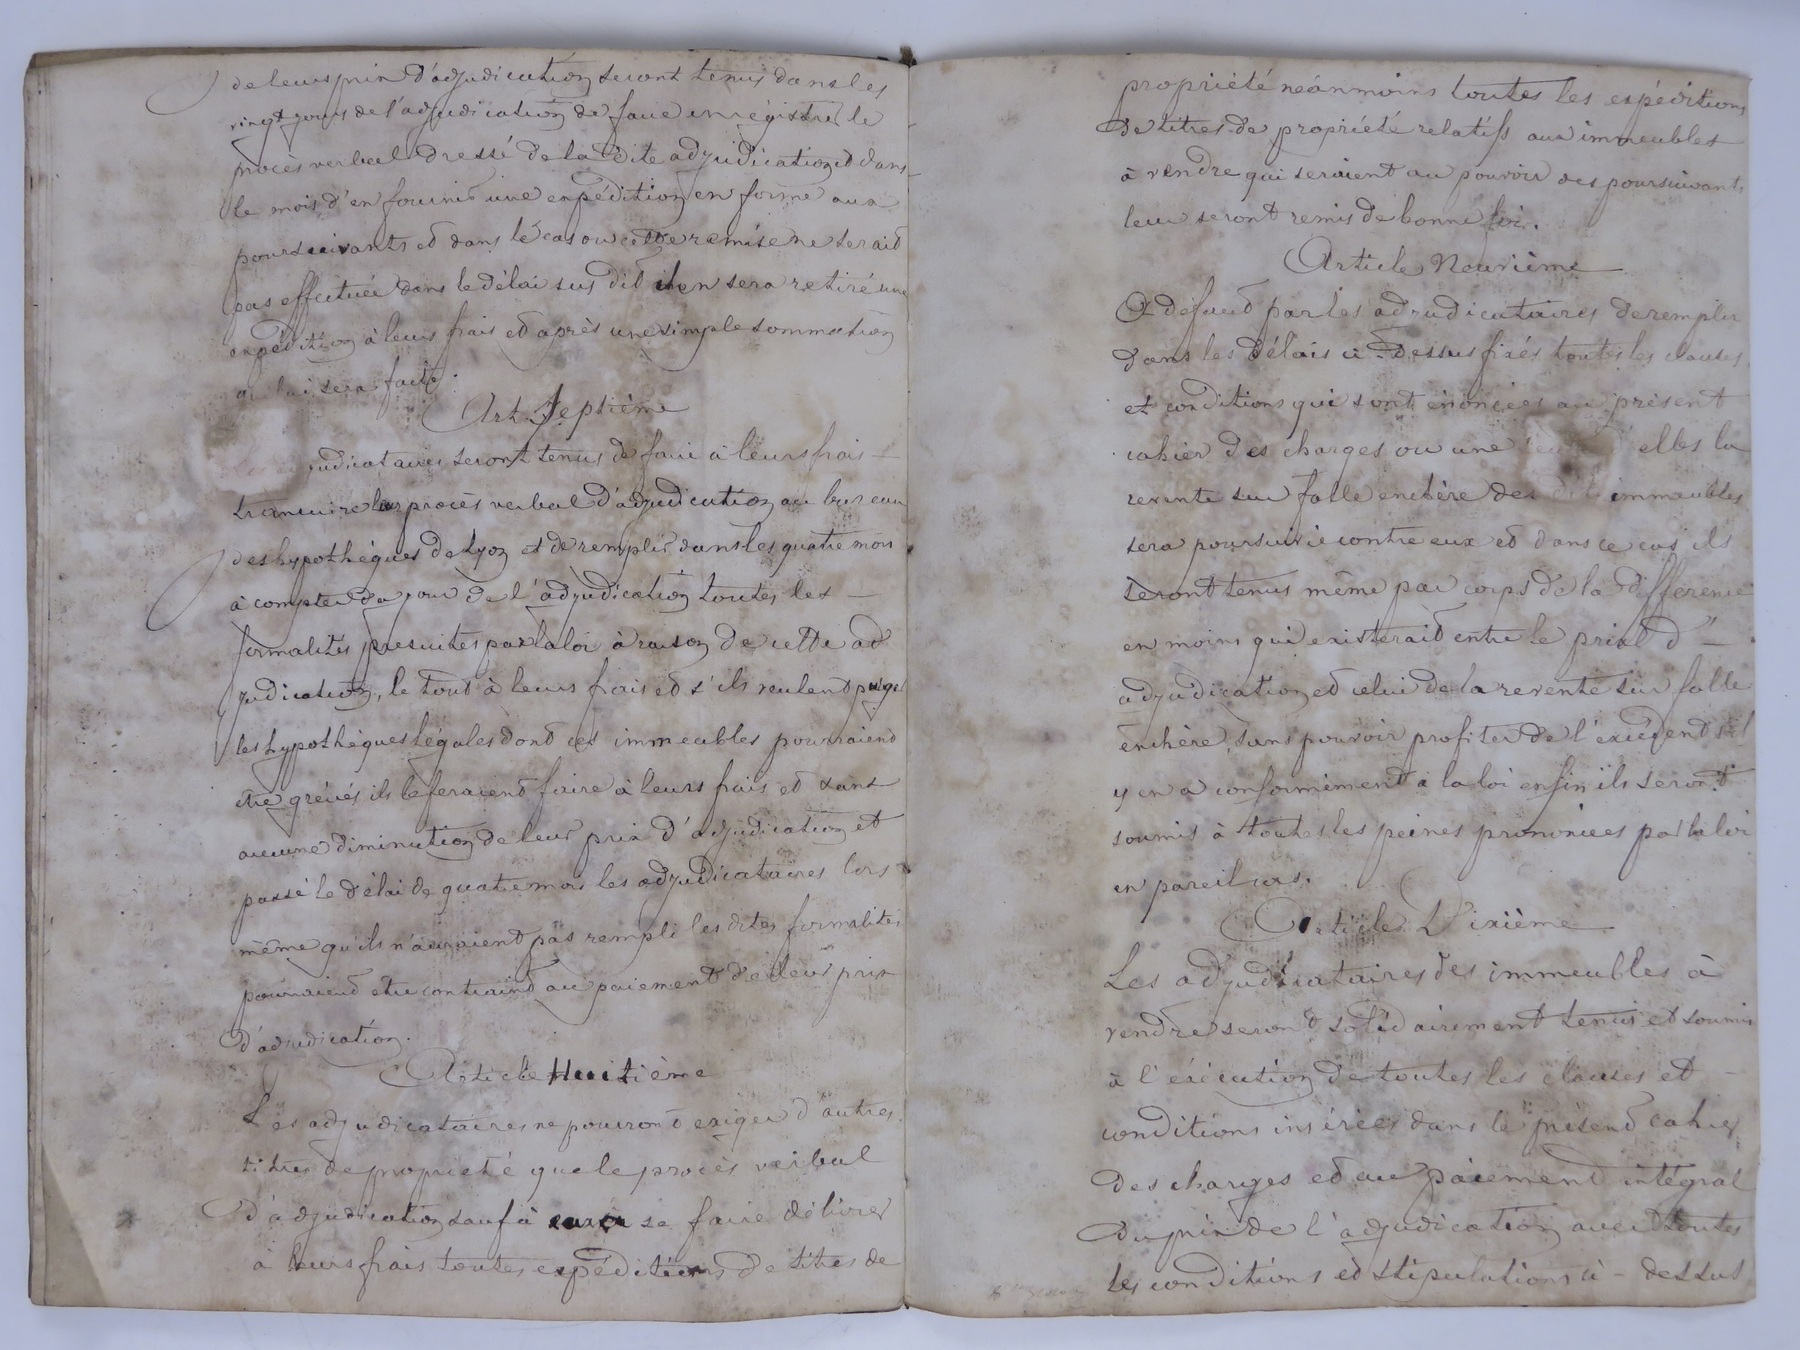 de leurs prix d'adjudication seront tenus dans les
vingt jours de l'adjudication de faire enrégistrer le
procès verbal dressé de la dite adjudication et dans
le mois d'en fournir une expédition en forme aux
poursuivants et dans le cas ou cette remise ne serait
pas effectuée dans le délai sus dit il en sera retiré une
expédition à leurs frais et après une simple sommation
qui lui sera faite.
Art. Septième
Les adjudicataires seront tenus de faire à leurs frais
transcrire leur procès verbal d'adjudication au bureau
des hypothèques de Lyon et de remplir dans les quatre mois
à compter du jour de l'adjudication toutes les
formalités prescrites par la loi à raison de cette ad
judication, le tout à leurs frais et s'ils veulent purger
les hypothèques légales dont ces immeubles pourraient
être grévés ils le feraient faire à leurs frais et sans
aucune diminution de leur prix d'adjudication et
passé le délai de quatre mois les adjudicataires lors
même qu'ils n'auraient pas rempli les dites formalités
pourraient être contraint au paiement de leur prix
d'adjudication.
Article Huitième
Les adjudicataires ne pourront exiger d'autres
titres de propriété que le procès verbal
d'adjudication sauf à eux à se faire délivrer
à leurs frais toutes expéditions de titres de
propriété néanmoins toutes les expéditions
de titres de propriété relatifs aux immeubles
à vendre qui seraient au pouvoir des poursuivants
leur seront remis de bonne foi.
Article Neuvième
A defaut par les adjudicataires de remplir
dans les délais ci-dessus fixés toutes les clauses
et conditions qui sont énoncées au présent
cahier des charges ou une elles la
revente sur folle enchère des dits immeubles
sera poursuivie contre eux et dans ce cas ils
seront tenus même par corps de la différence
en moins qui existerait entre le prix d'
adjudication et celui de la revente sur folle
enchère, sans pouvoir profiter de l'excédent s'il
y en a conformément à la loi enfin ils seront
soumis à toutes les peines prononcées par la loi
en pareil cas.
Article Dixième
Les adjudicataires des immeubles à
vendre seront solidairement tenus et soumis
à l'exécution de toutes les clauses et
conditions insérées dans le présent cahier
des charges et au paiement intégral
du prix de l'adjudication avec toutes
les conditions et stipulations ci-dessus